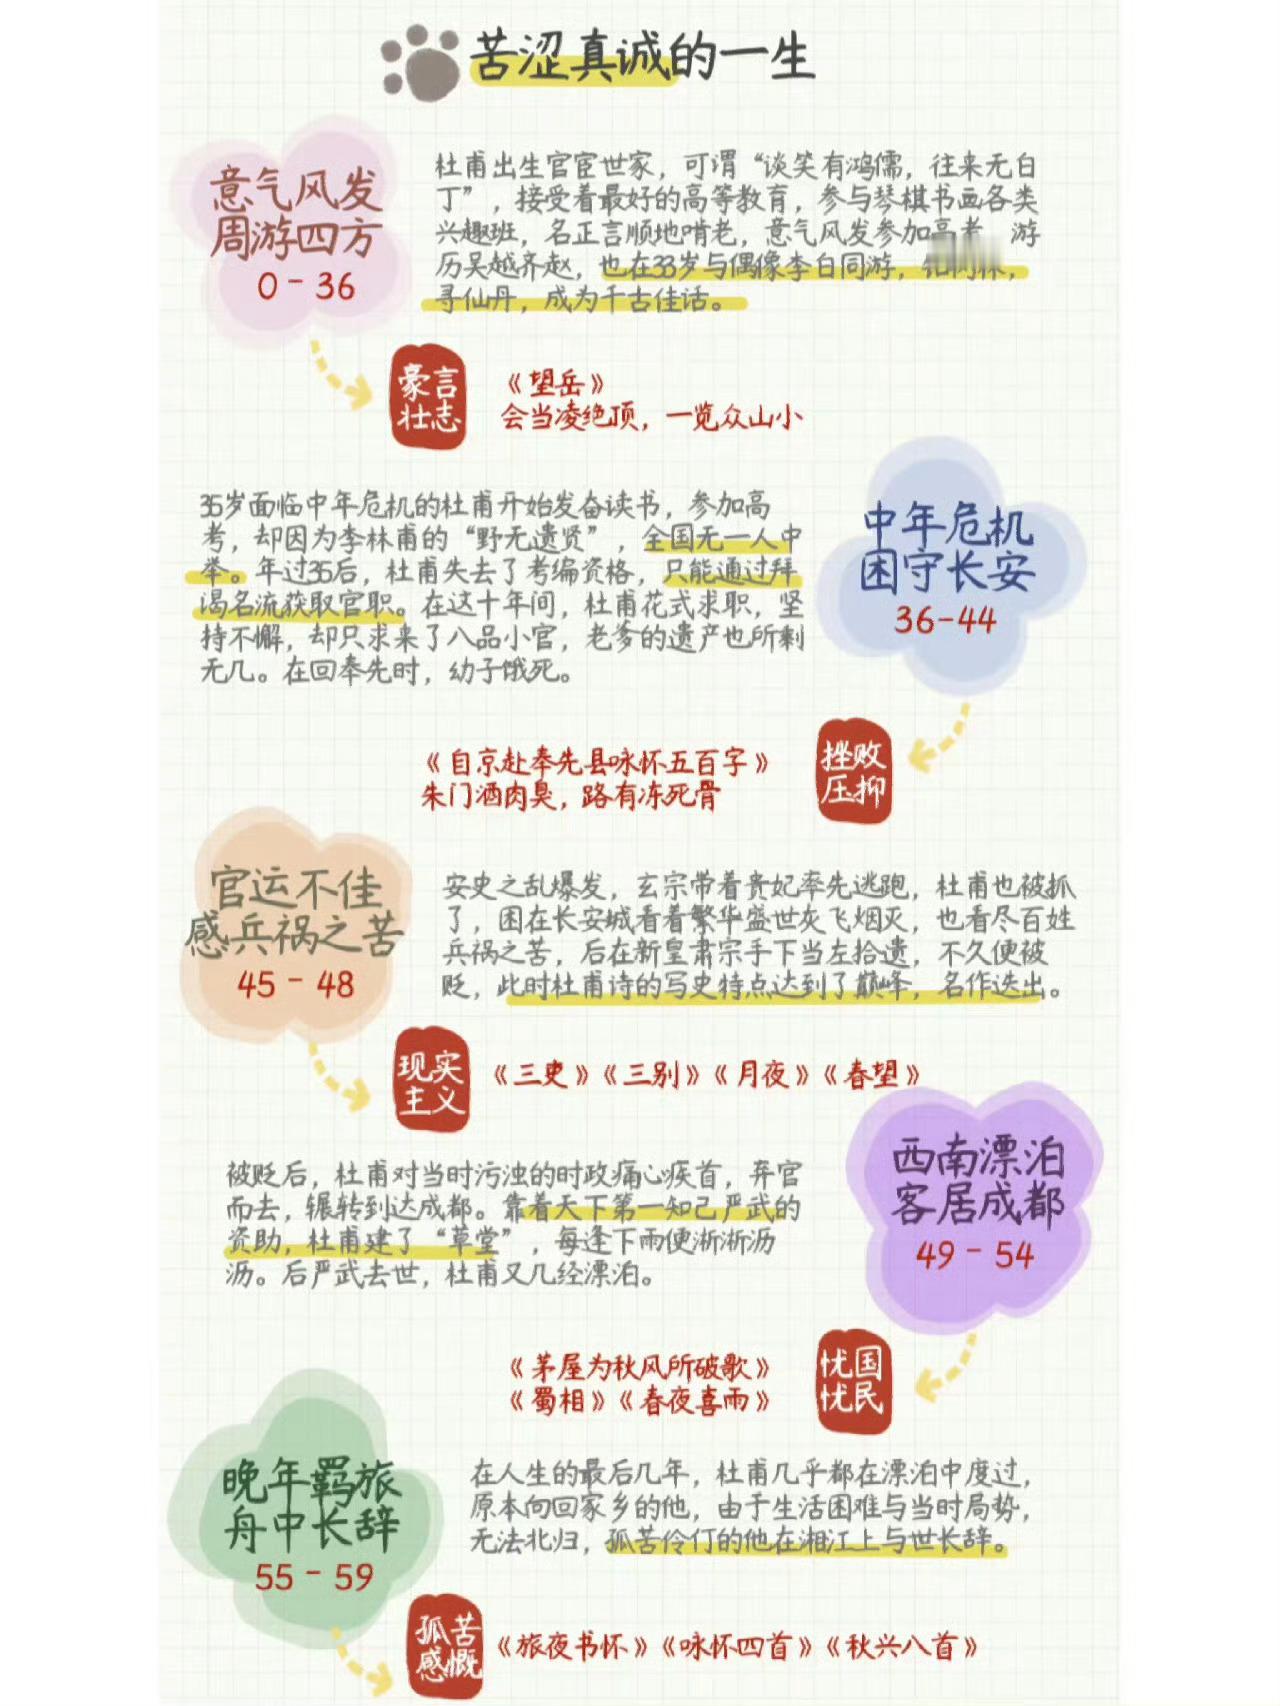 苦涩真诚的一生
意气风发
周游四方
0 - 36
杜甫出生官宦世家，可谓“谈笑有鸿儒，往来无白
丁”，接受着最好的高等教育，参与琴棋书画各类
兴趣班，名正言顺地啃老，意气风发参加高考，游
历吴越齐赵，也在33岁与偶像李白同游，
寻仙丹，成为千古佳话。
豪言
壮志
《望岳》
会当凌绝顶，一览众山小
35岁面临中年危机的杜甫开始发奋读书，参加高
考，却因为李林甫的“野无遗贤”，全国无一人中
举。年过35后，杜甫失去了考编资格，只能通过拜
谒名流获取官职。在这十年间，杜甫花式求职，坚
持不懈，却只求来了八品小官，老爹的遗产也所剩
无几。在回奉先时，幼子饿死。
中年危机
困守长安
36-44
《自京赴奉先县咏怀五百字》
朱门酒肉臭，路有冻死骨
挫败
压抑
官运不佳
感兵祸之苦
45 - 48
安史之乱爆发，玄宗带着贵妃率先逃跑，杜甫也被抓
了，困在长安城看着繁华盛世灰飞烟灭，也看尽百姓
兵祸之苦，后在新皇肃宗手下当左拾遗，不久便被
贬，此时杜甫诗的写史特点达到了巅峰，名作迭出。
现实
主义
《三吏》《三别》《月夜》《春望》
被贬后，杜甫对当时污浊的时政痛心疾首，弃官
而去，辗转到达成都。靠着天下第一知己严武的
资助，杜甫建了“草堂”，每逢下雨便淅淅沥
沥。后严武去世，杜甫又几经漂泊。
西南漂泊
客居成都
49 - 54
《茅屋为秋风所破歌》
《蜀相》《春夜喜雨》
忧国
忧民
晚年羁旅
舟中长辞
55 - 59
在人生的最后几年，杜甫几乎都在漂泊中度过，
原本向回家乡的他，由于生活困难与当时局势，
无法北归，孤苦伶仃的他在湘江上与世长辞。
孤苦
感慨
《旅夜书怀》《咏怀四首》《秋兴八首》